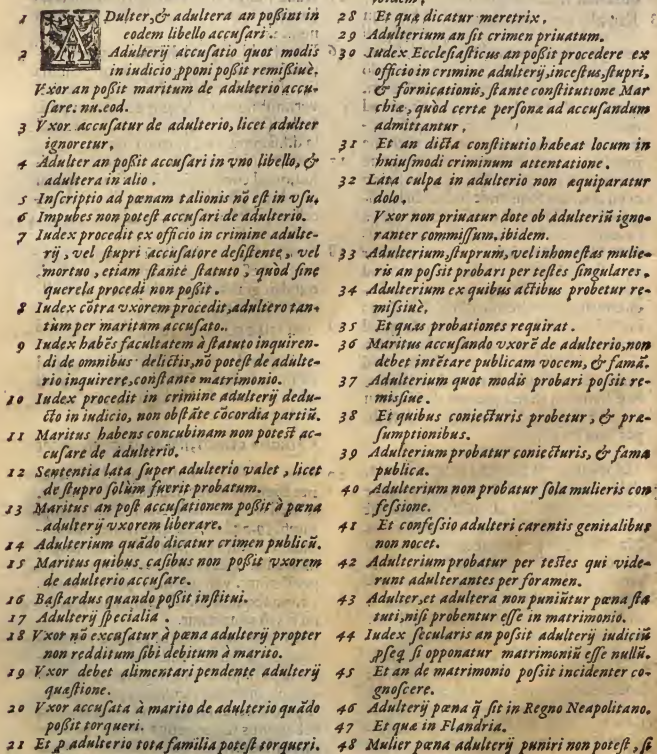 1 ADulter,& adultera an poßint in
eodem libello accuſari.
2 Adulterij accuſatio quot modis
in iudicio ꝓponi poßit remißiuè.
Vxor an poßit maritum de adulterio accu-
ſare. nu. eod.
3 Vxor accuſatur de adulterio, licet adulter
ignoretur.
4 Adulter an poßit accuſari in vno libello, &
adultera in alio.
5 Inſcriptio ad pœnam talionis nō eſt in vſu.
6 Impubes non poteſt accuſari de adulterio.
7 Iudex procedit ex officio in crimine adulte-
rij, vel ſtupri accuſatore deſiſtente, vel
mortuo, etiam ſtante ſtatuto, quòd ſine
querela procedi non poßit.
8 Iudex cōtra vxorem procedit, adultero tan-
tùm per maritum accuſato.
9 Iudex habēs facultatem à ſtatuto inquiren-
di de omnibus delictis, nō poteſt de adulte-
rio inquirere, conſtante matrimonio.
10 Iudex procedit in crimine adulterij dedu-
cto in iudicio, non obſtāte cōcordia partiū.
11 Maritus habens concubinam non poteſt ac-
cuſare de adulterio.
12 Sententia lata ſuper adulterio valet, licet
de ſtupro ſolùm fuerit probatum.
13 Maritus an poſt accuſationem poßit à pœna
adulterij vxorem liberare.
14 Adulterium quādo dicatur crimen publicū.
15 Maritus quibus caſibus non poßit vxorem
de adulterio accuſare.
16 Baſtardus quando poßit inſtitui.
17 Adulterij ſpecialia.
18 Vxor nō excuſatur à pœna adulterij propter
non redditum ſibi debitum à marito.
19 Vxor debet alimentari pendente adulterij
quæſtione.
20 Vxor accuſata à marito de adulterio quādo
poßit torqueri.
21 Et ꝓ adulterio tota familia poteſt torqueri.
28 Et quæ dicatur meretrix.
29 Adulterium an ſit crimen priuatum.
30 Iudex Eccleſiaſticus an poßit procedere ex
officio in crimine adulterij, inceſtus, ſtupri,
& fornicationis, ſtante conſtitutione Mar
chiæ, quòd certæ perſonæ ad accuſandum
admittantur.
31 Et an dicta conſtitutio habeat locum in
huiuſmodi criminum attentatione.
32 Lata culpa in adulterio non æquiparatur
dolo.
Vxor non priuatur dote ob adulteriū igno-
ranter commiſſum. ibidem.
33 Adulterium, ſtuprum, vel inhoneſtas mulie-
ris an poſsit probari per teſtes ſingulares.
34 Adulterium ex quibus actibus probetur re-
miſsiuè.
35 Et quas probationes requirat.
36 Maritus accuſando vxorē de adulterio, non
debet intētare publicam vocem, & famā.
37 Adulterium quot modis probari poſsit re-
miſsiue.
38 Et quibus coniecturis probetur, & præ-
ſumptionibus.
39 Adulterium probatur coniecturis, & fama
publica.
40 Adulterium non probatur ſola mulieris con
feſsione.
41 Et confeſsio adulteri carentis genitalibus
non nocet.
42 Adulterium probatur per teſtes qui vide-
runt adulterantes per foramen.
43 Adulter, et adultera non puniūtur pœna ſta
tuti, niſi probentur eſſe in matrimonio.
44 Iudex ſecularis an poſsit adulterij iudiciū
ꝓſeq̄ ſi opponatur matrimoniū eſſe nullū.
45 Et an de matrimonio poſsit incidenter co-
gnoſcere.
46 Adulterij pœna q̄ ſit in Regno Neapolitano.
47 Et quæ in Flandria.
48 Mulier pœna adulterij puniri non poteſt, ſi